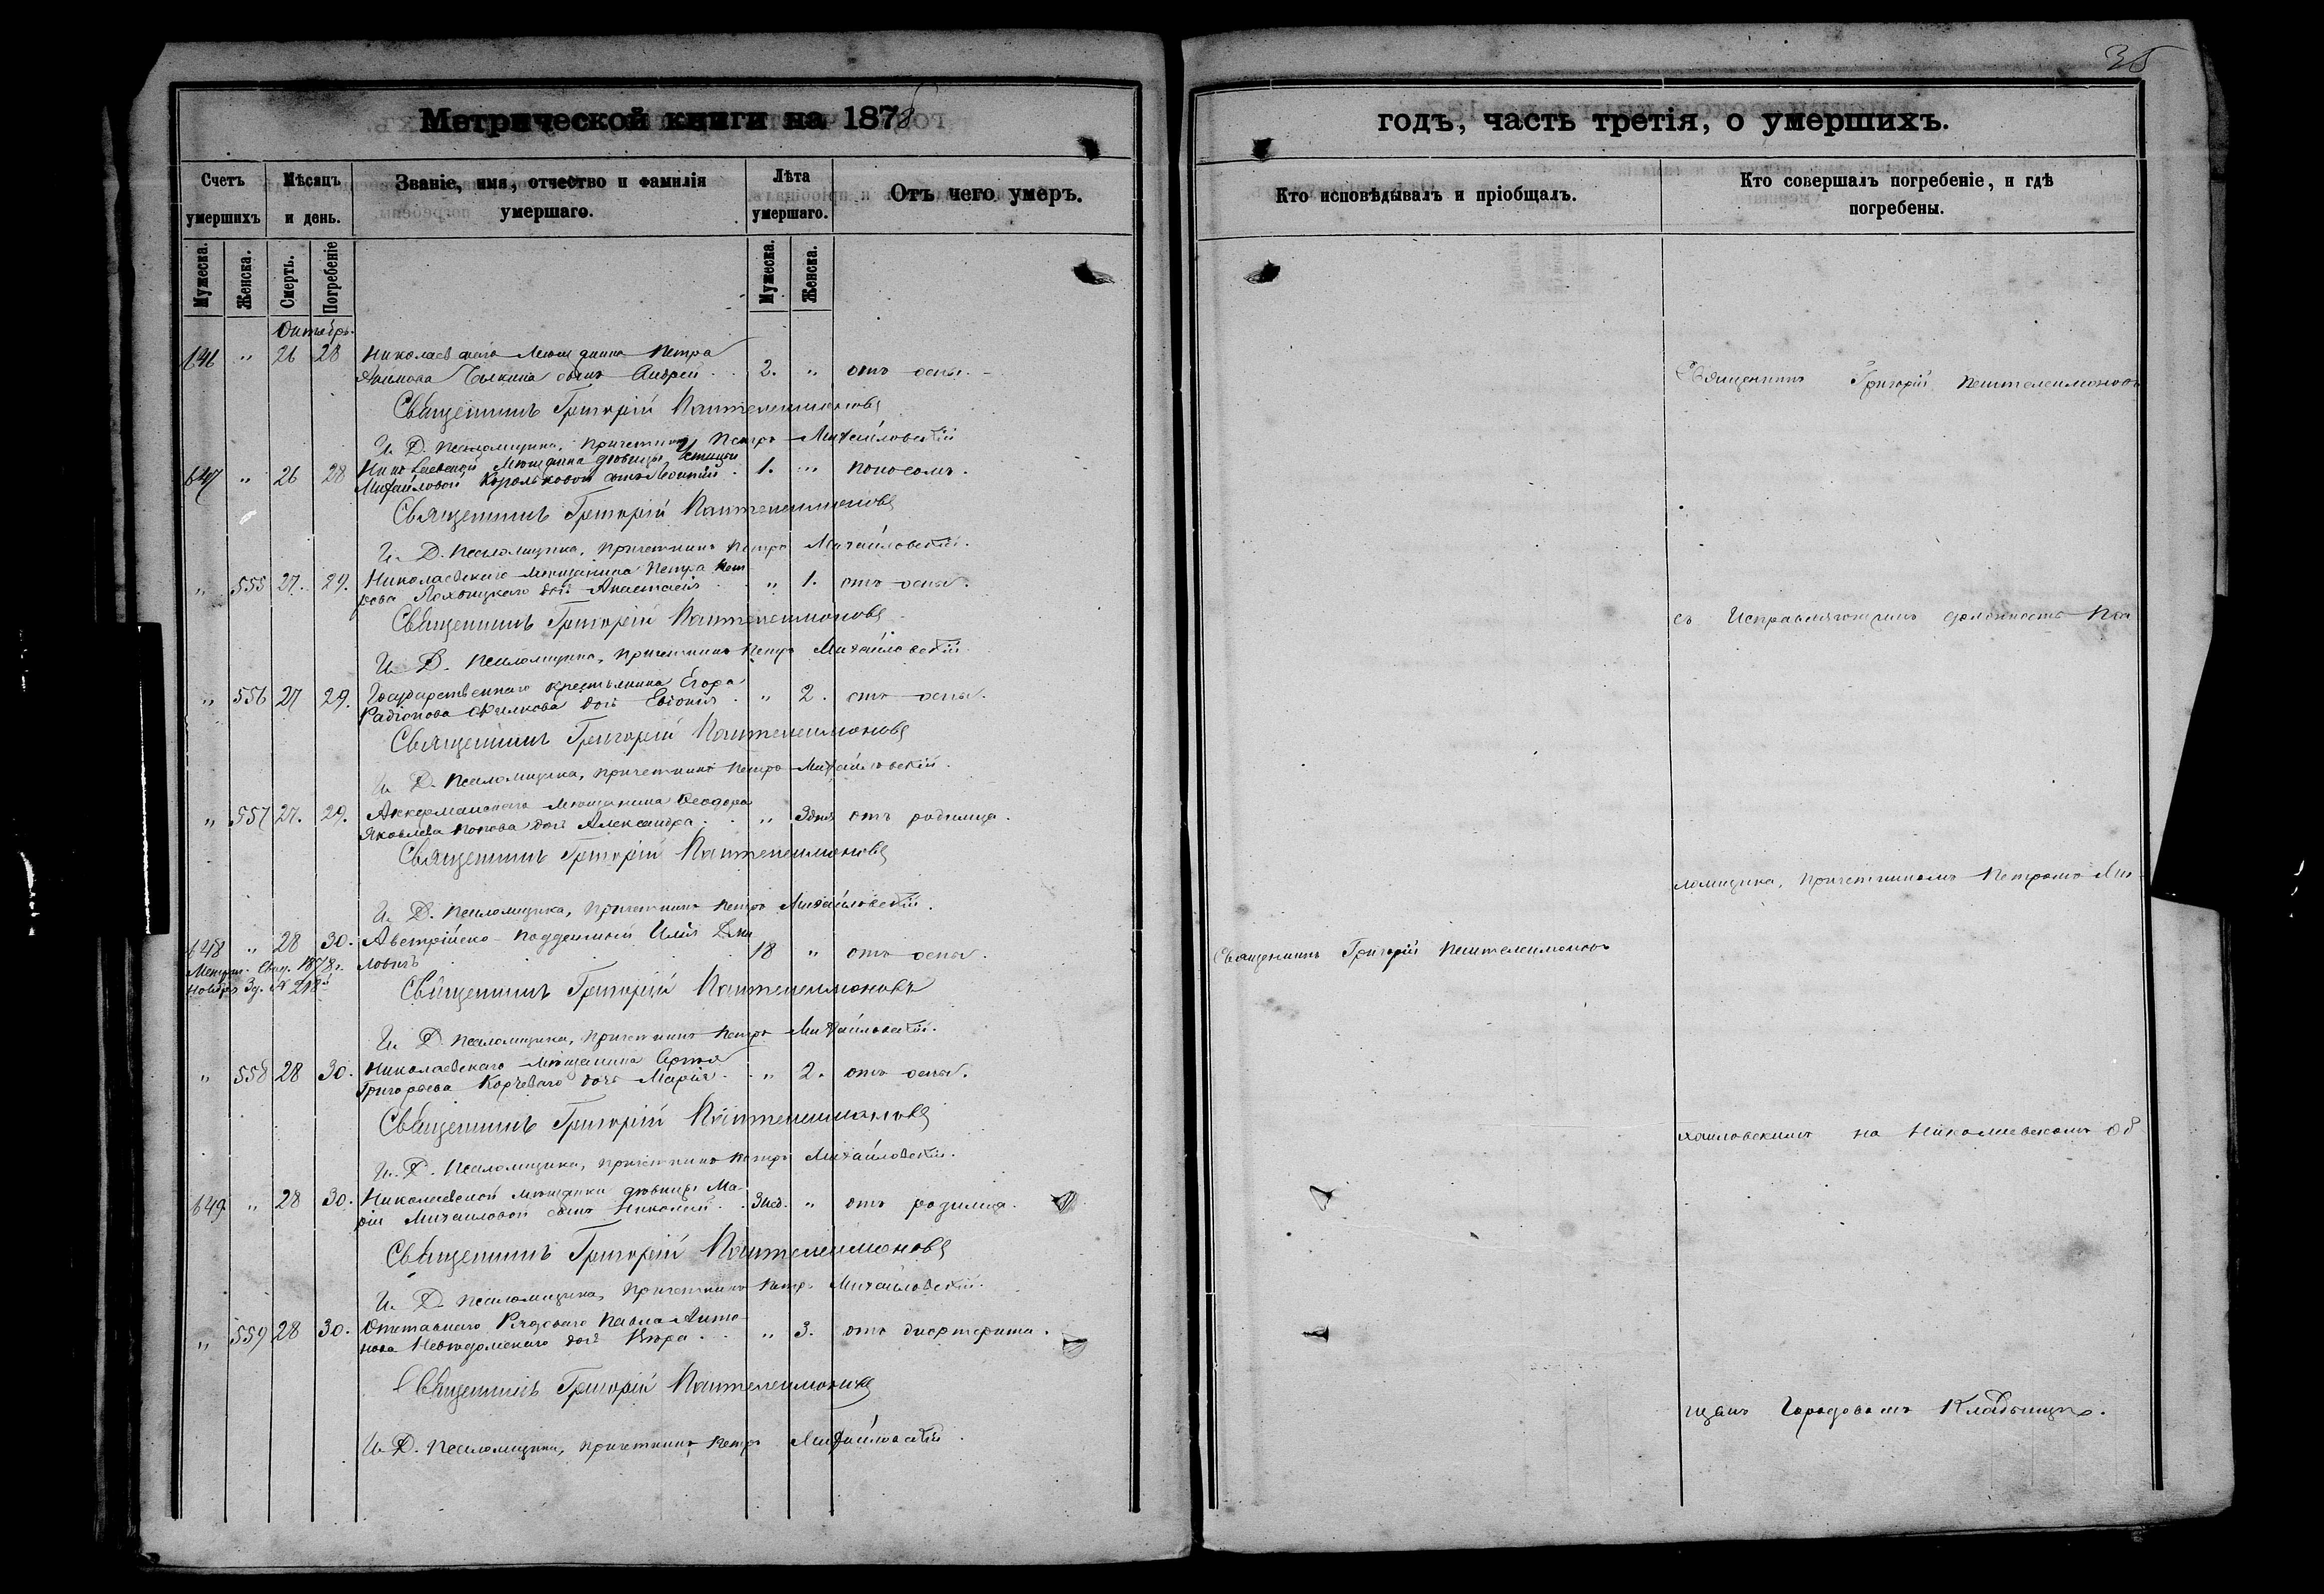 35
Метрической книги на 1878
годъ, часть третія, о умершихъ.
Счетъ умершихъ
Мѣсяцъ и день.
Званіе, имя, отчество и фамилія умершаго.
Лѣта умершаго.
Отъ чего умеръ.
Кто исповѣдывалъ и пріобщалъ.
Кто совершалъ погребеніе, и гдѣ погребены.
Мужеска. Женска. Смерть. Погребеніе Мужеска. Женска.
Октябрь.
646 " 26 28 Николаевскаго Мѣщанина Петра
сынъ Андрей 2. " отъ оспы.
Священникъ Григорій Пантелеимоновъ
И. Д. Псаломщика, Причетникъ Петръ Михайловскій
647 " 26 28 Николаевской Мѣщанки дѣвицы
Михайловой Корольковой сынъ 1. " поносомъ.
Священникъ Григорій Пантелеимоновъ
И. Д. Псаломщика, Причетникъ Петръ Михайловскій.
" 555 27. 29. Николаевскаго Мѣщанина Петра Пет
рова дочь Анастасія " 1. отъ оспы.
Священникъ Григорій Пантелеимоновъ
И. Д. Псаломщика, Причетникъ Петръ Михайловскій.
" 556 27 29. Государственнаго крестьянина Егора
Радіонова дочь Евдокія " 2. отъ оспы.
Священникъ Григорій Пантелеимоновъ
И. Д. Псаломщика, Причетникъ Петръ Михайловскій.
" 557 27. 29. Аккерманскаго Мѣщанина Ѳеодора
Яковлева Попова дочь Александра " 3 дня отъ родимца.
Священникъ Григорій Пантелеимоновъ
И. Д. Псаломщика, Причетникъ Петръ Михайловскій.
648 " 28 30. Австрійско-подданный Илія
ловичъ 18 " отъ оспы.
Метрич. Свид. 1878 г.
Ноября 3 д. № 218
Священникъ Григорій Пантелеимоновъ
И. Д. Псаломщика, Причетникъ Петръ Михайловскій.
" 558 28 30. Николаевскаго Мѣщанина Сергѣя
Григорьева Корчеваго дочь Марія " 2. отъ оспы.
Священникъ Григорій Пантелеимоновъ
И. Д. Псаломщика, Причетникъ Петръ Михайловскій.
649 " 28 30. Николаевской Мѣщанки дѣвицы Ма-
ріи Михаиловой сынъ Николай 3 нед. " отъ родимца.
Священникъ Григорій Пантелеимоновъ
И. Д. Псаломщика, Причетникъ Петръ Михайловскій.
" 559 28 30. Отставнаго Рядоваго Павла Анто
нова дочь Вѣра " 3. отъ дифтерита.
Священникъ Григорій Пантелеимоновъ
И. Д. Псаломщика, Причетникъ Петръ Михайловскій.
Священникъ Григорій Пантелеимоновъ
Священникъ Григорій Пантелеимоновъ
съ Исправляющимъ должность Пса
ломщика, Причетникомъ Петромъ Ми-
хайловскимъ на Николаевскомъ Об
щемъ Городовомъ Кладбищѣ.